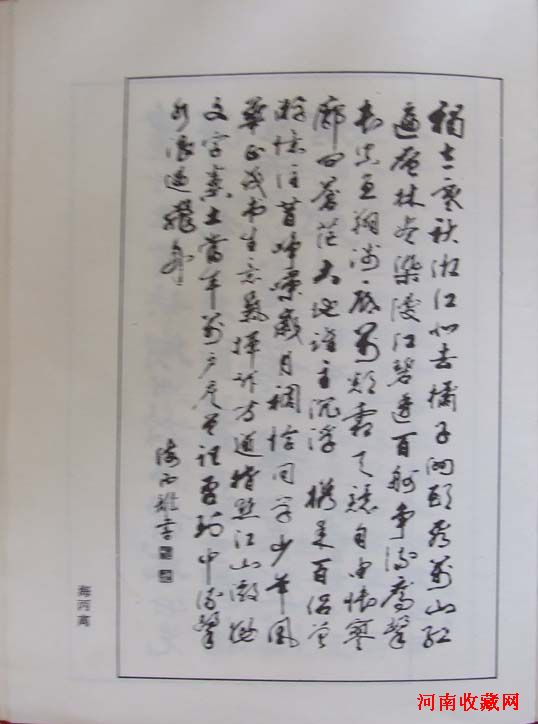 獨立寒秋湘江北去橘子洲頭看萬山紅
遍層林盡染漫江碧透百舸爭流鷹擊
長空魚翔淺底萬類霜天競自由悵寥
廓問蒼茫大地誰主沉浮 携來百侶曾
游憶往昔崢嶸歲月稠恰同學少年風
華正茂書生意氣揮斥方遒指點江山激揚
文字糞土當年萬戶侯曾記否到中流擊
水浪遏飛舟
海丙
海丙高
河南收藏网